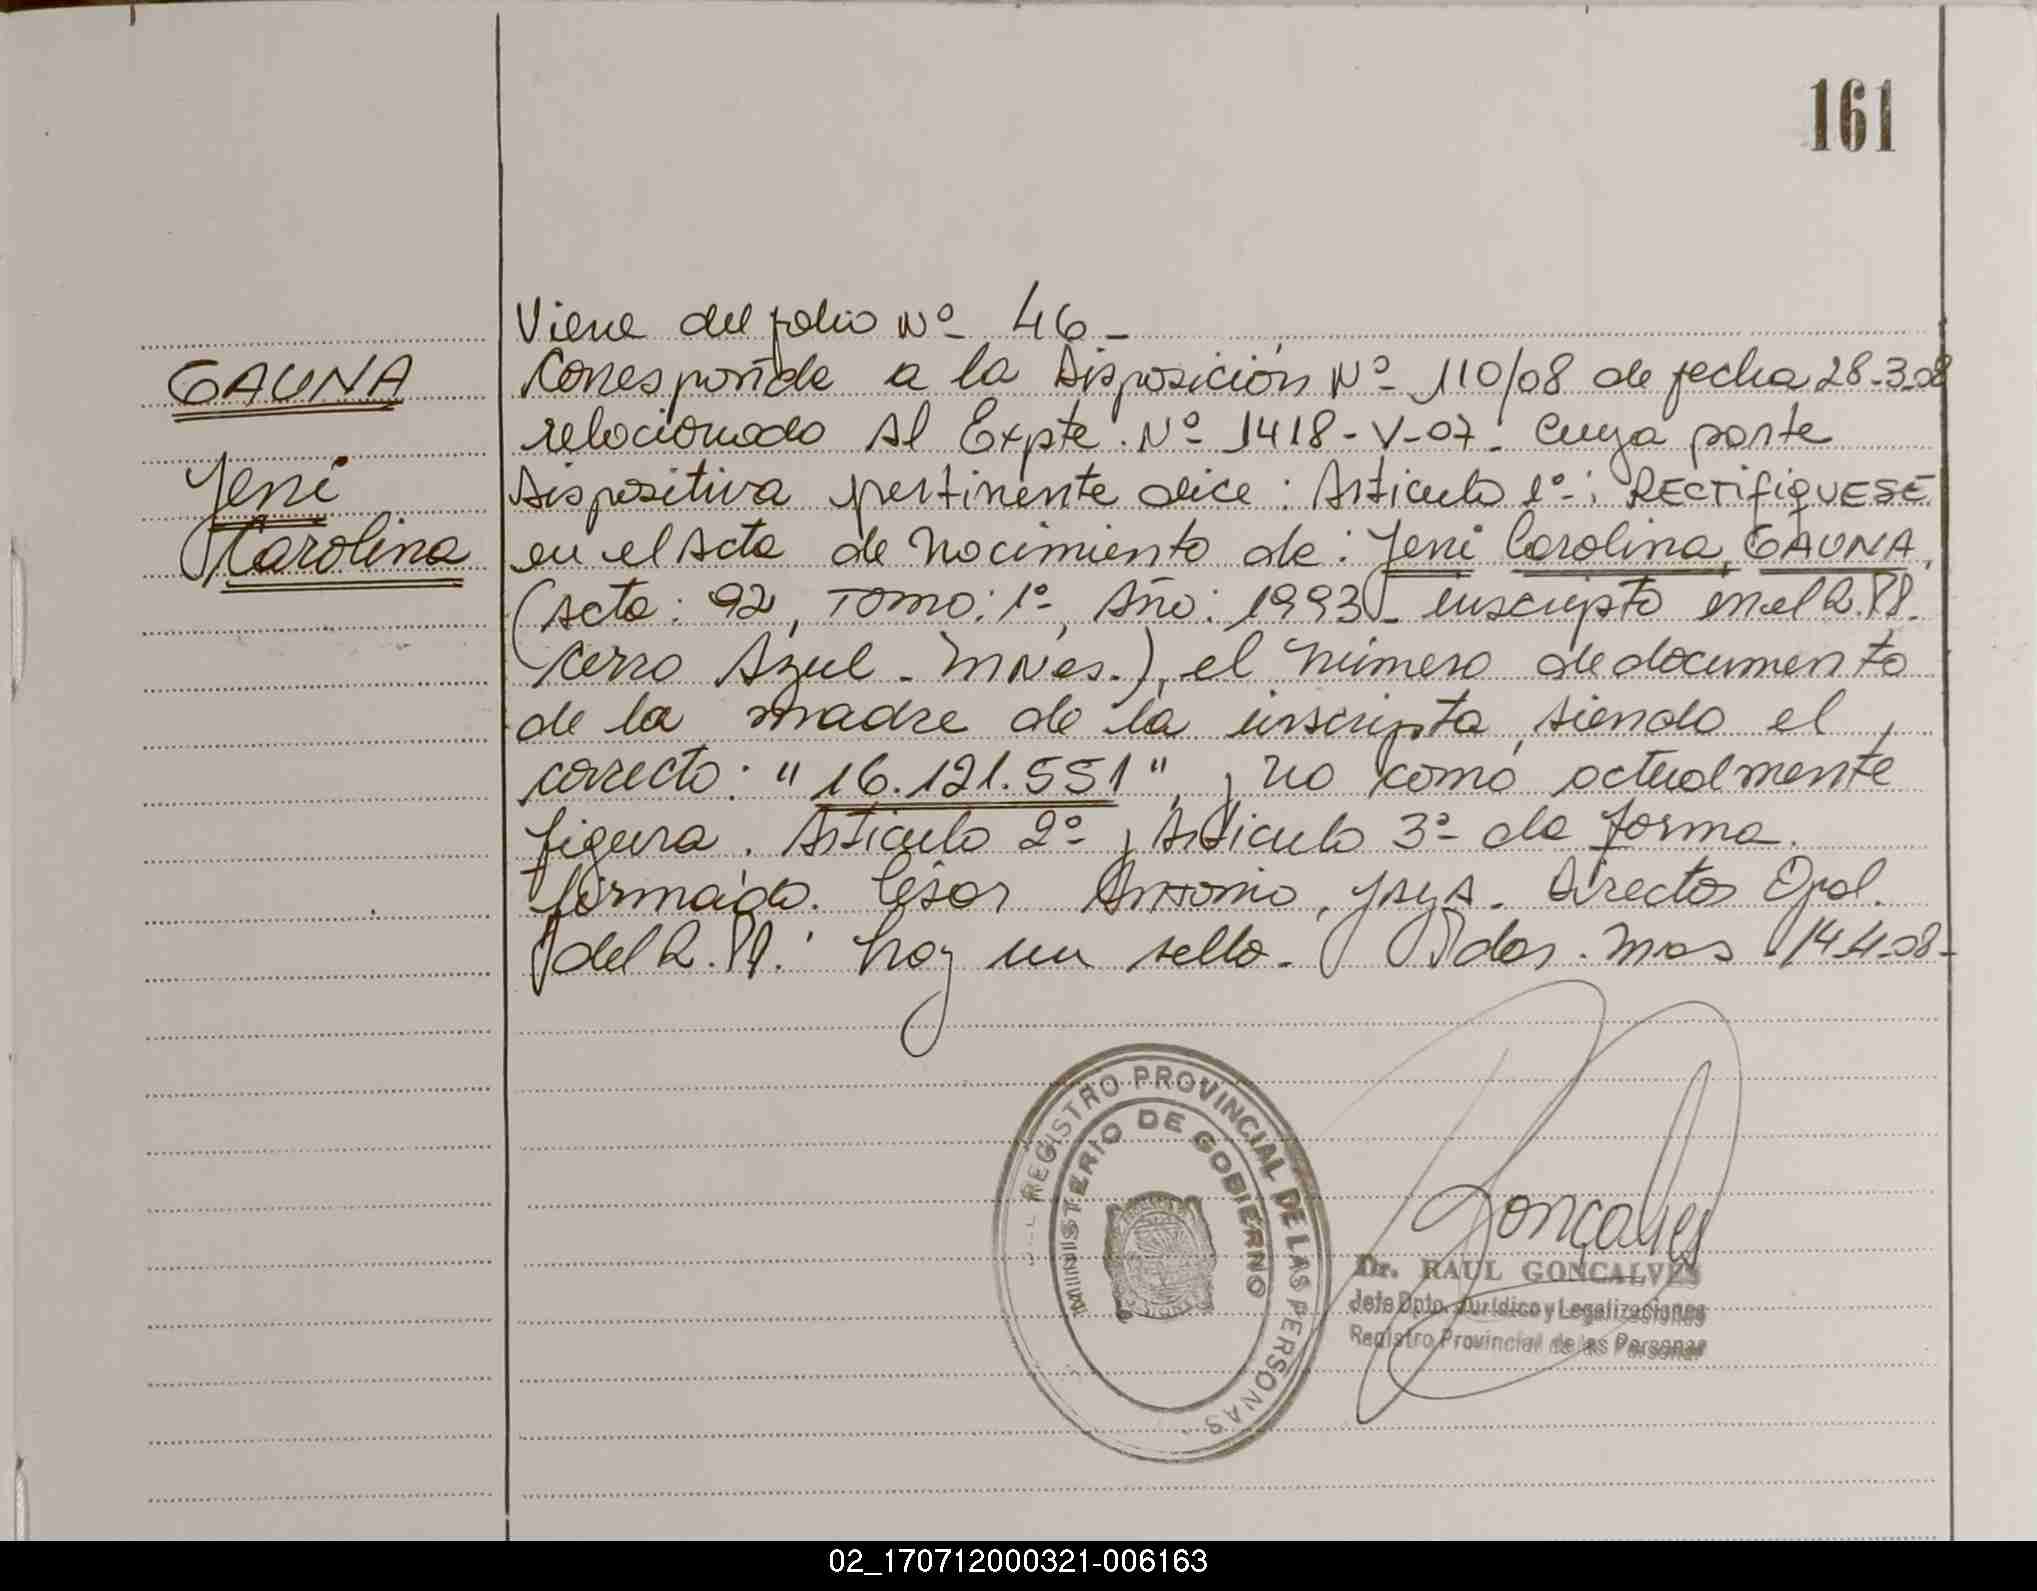 161
Viene del folio Nº 46_
GAUNA
Corresponde a la Disposición Nº 110/08 de fecha 28-3-08
relacionado al Expte. Nº 1418-V-07. Cuya parte
Jeni
Dispositiva pertinente dice: Articulo 1º-: RECTIFIQUESE
Carolina
en el Acta de Nacimiento de: Jeni Carolina, GAUNA,
(Acta: 92, TOMO: 1º-, Año: 1993_ inscripto en el R.PP.
Cerro Azul - MNes.), el Número de documento
de la madre de la inscripta, siendo el
correcto: "16.121.551", y no como actualmente
figura. Articulo 2º y Articulo 3º de forma.
firmado. César Antonio, Director Gral.
del R.PP. hay un sello. Pdas. Mnes 14-4-08-
REGISTRO PROVINCIAL DE LAS PERSONAS
MINISTERIO DE GOBIERNO
Gonçalves
Dr. RAUL GONCALVES
Jefe Dpto. Jurídico y Legalizaciones
Registro Provincial de las Personas
02_170712000321-006163